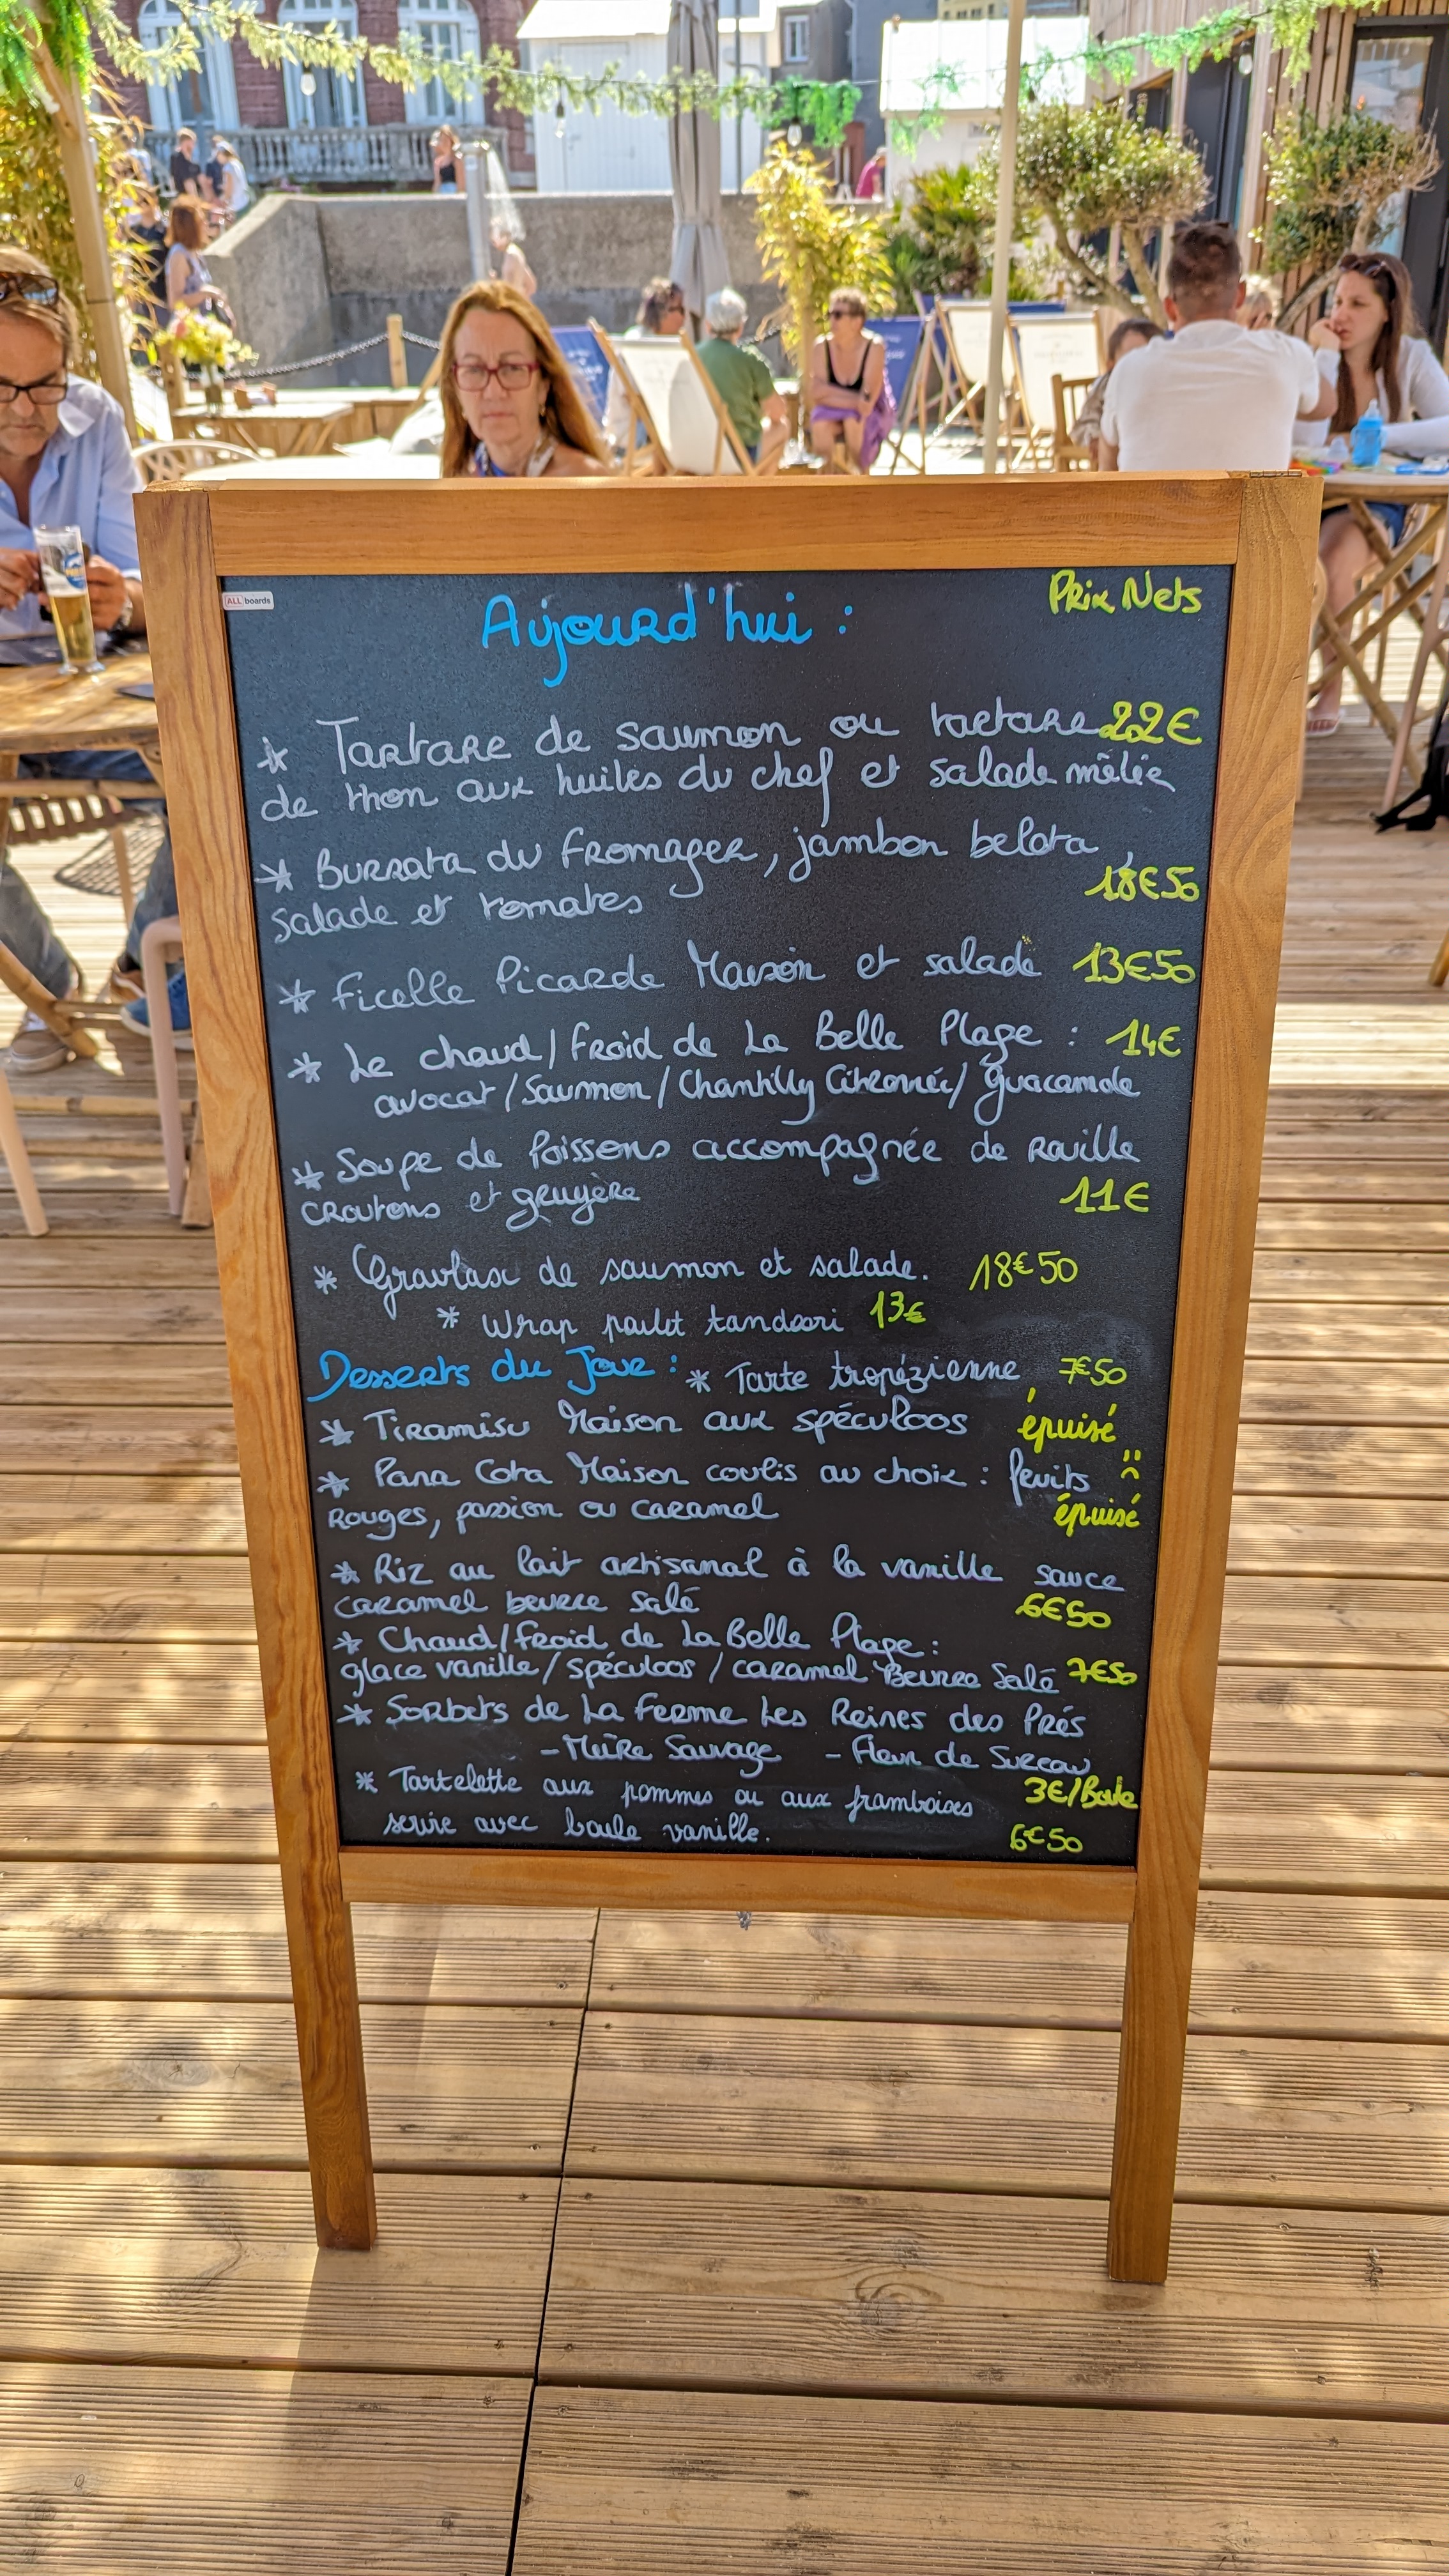 ALL boards
Aujourd'hui :
Prix Nets
* Tartare de saumon ou tartare 22€
de thon aux huiles du chef et salade mêlée
* Burrata du fromager, jambon belota,
salade et tomates 18€50
* Ficelle Picarde Maison et salade 13€50
* Le chaud/froid de La Belle Plage : 14€
avocat/Saumon/Chantilly Citronnée/guacamole
* Soupe de Poissons accompagnée de rouille
croutons et gruyère 11€
* Gravlax de saumon et salade. 18€50
* Wrap poulet tandoori 13€
Desserts du Jour : * Tarte tropézienne 7€50
* Tiramisu Maison aux spéculoos épuisé
* Pana Cota Maison coulis au choix : fruits
Rouges, passion ou caramel épuisé
* Riz au lait artisanal à la vanille sauce
caramel beurre salé 6€50
* Chaud/froid de La Belle Plage :
glace vanille/spéculoos/caramel Beurre Salé 7€50
* Sorbets de La Ferme Les Reines des Prés
- Mûre Sauvage - Fleur de Sureau
3€/Boule
* Tartelette aux pommes ou aux framboises
servie avec boule vanille. 6€50